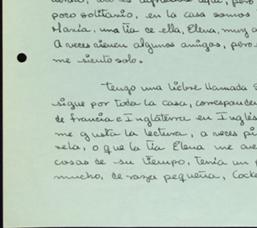 poco solitario, en la casa somos
María, una tía de ella, Elena, muy a
A veces vienen algunos amigos, pero
me siento solo.
tengo una liebre llamada
sigue por toda la casa, corresponden
de francia e Inglaterra en Inglés
me gusta la lectura, a veces pi
tela, o que la tía Elena me
cosas de su tiempo, tenía un p
mucho, de raza pequeña, Cocke